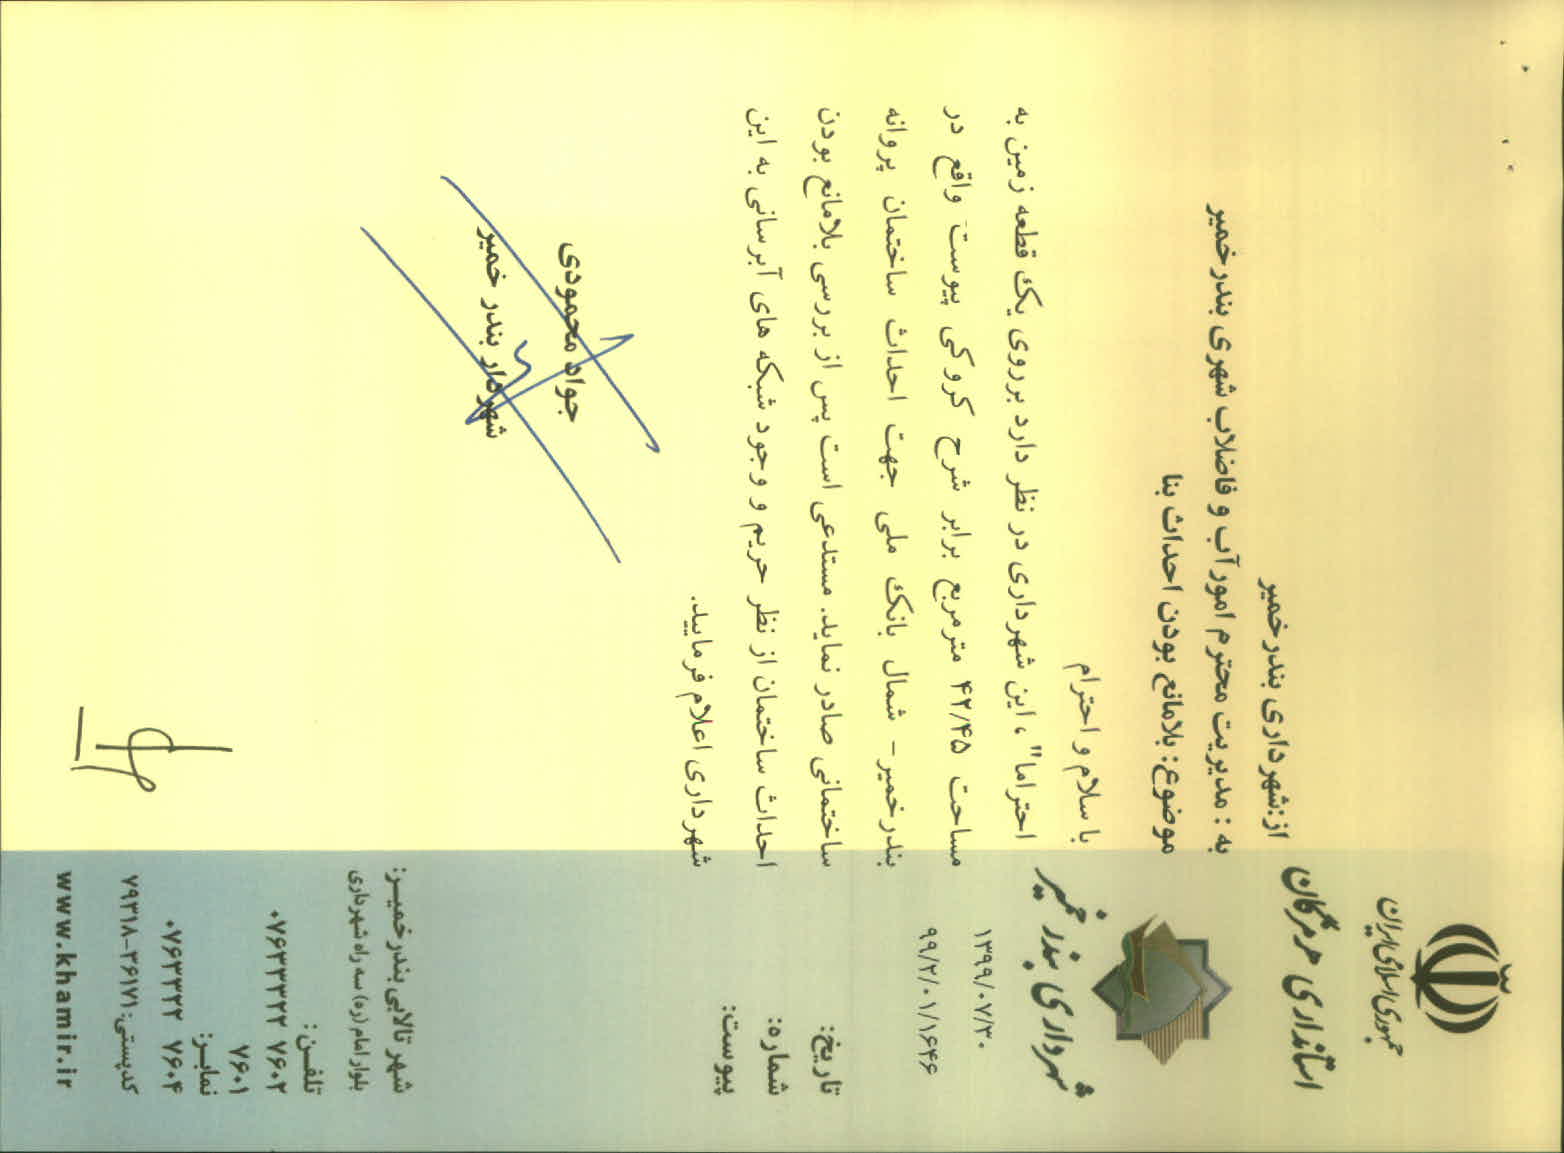 جمهوری اسلامی ایران
استانداری هرمزگان
شهرداری بندر خمیر
۱۳۹۹/۰۷/۳۰
۹۹/۲/۰۱/۱۶۴۶
تاریخ:
شماره:
پیوست:
از:شهرداری بندرخمیر
به : مدیریت محترم امور آب و فاضلاب شهری بندرخمیر
موضوع: بلامانع بودن احداث بنا
با سلام و احترام
احتراما" ، این شهرداری در نظر دارد برروی یک قطعه زمین به
مساحت ۴۲/۴۵ مترمربع برابر شرح کروکی پیوست واقع در
بندرخمیر- شمال بانک ملی جهت احداث ساختمان پروانه
ساختمانی صادر نماید. مستدعی است پس از بررسی بلامانع بودن
احداث ساختمان از نظر حریم و وجود شبکه های آبرسانی به این
شهرداری اعلام فرمایید.
جواد محمودی
شهردار بندر خمیر
شهر تالابی بندرخمیـر:
بلوار امام (ره) سه راه شهرداری
تلفـن :
۰۷۶۳۳۳۲۲ ۷۶۰۲
۷۶۰۱
نمابـر:
۰۷۶۳۳۲۲ ۷۶۰۴
کدپستی: ۳۶۱۷۱-۷۹۳۱۸
www.khamir.ir